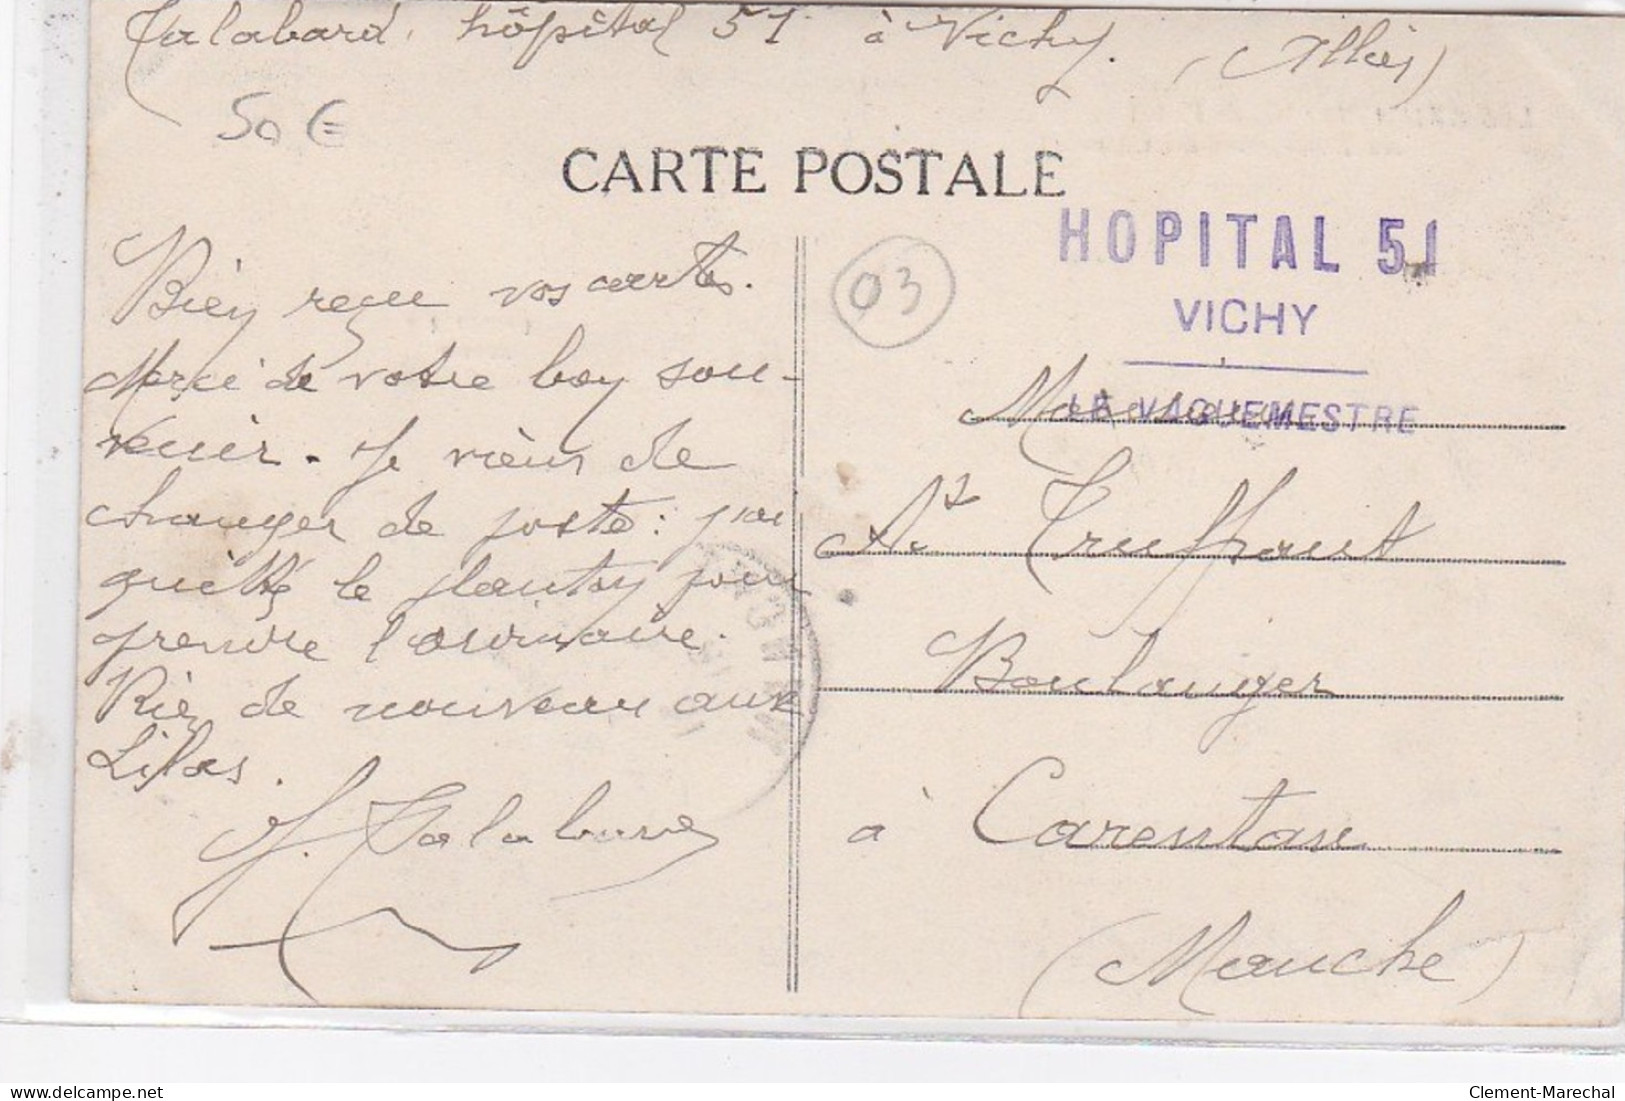 Talabard, hôpital 51 à Vichy. (Allier)
50 €
CARTE POSTALE
HOPITAL 51
VICHY
LE VAGUEMESTRE
03
Bien reçu vos cartes.
Merci de votre bon sou-
venir. Je viens de
changer de poste : j'ai
quitté le planton pour
prendre l'ordinaire.
Rien de nouveau aux
Lilas.
Talabard
Monsieur
Truffaut
Boulanger
à Carentan
(Manche)
Clement-Marechal